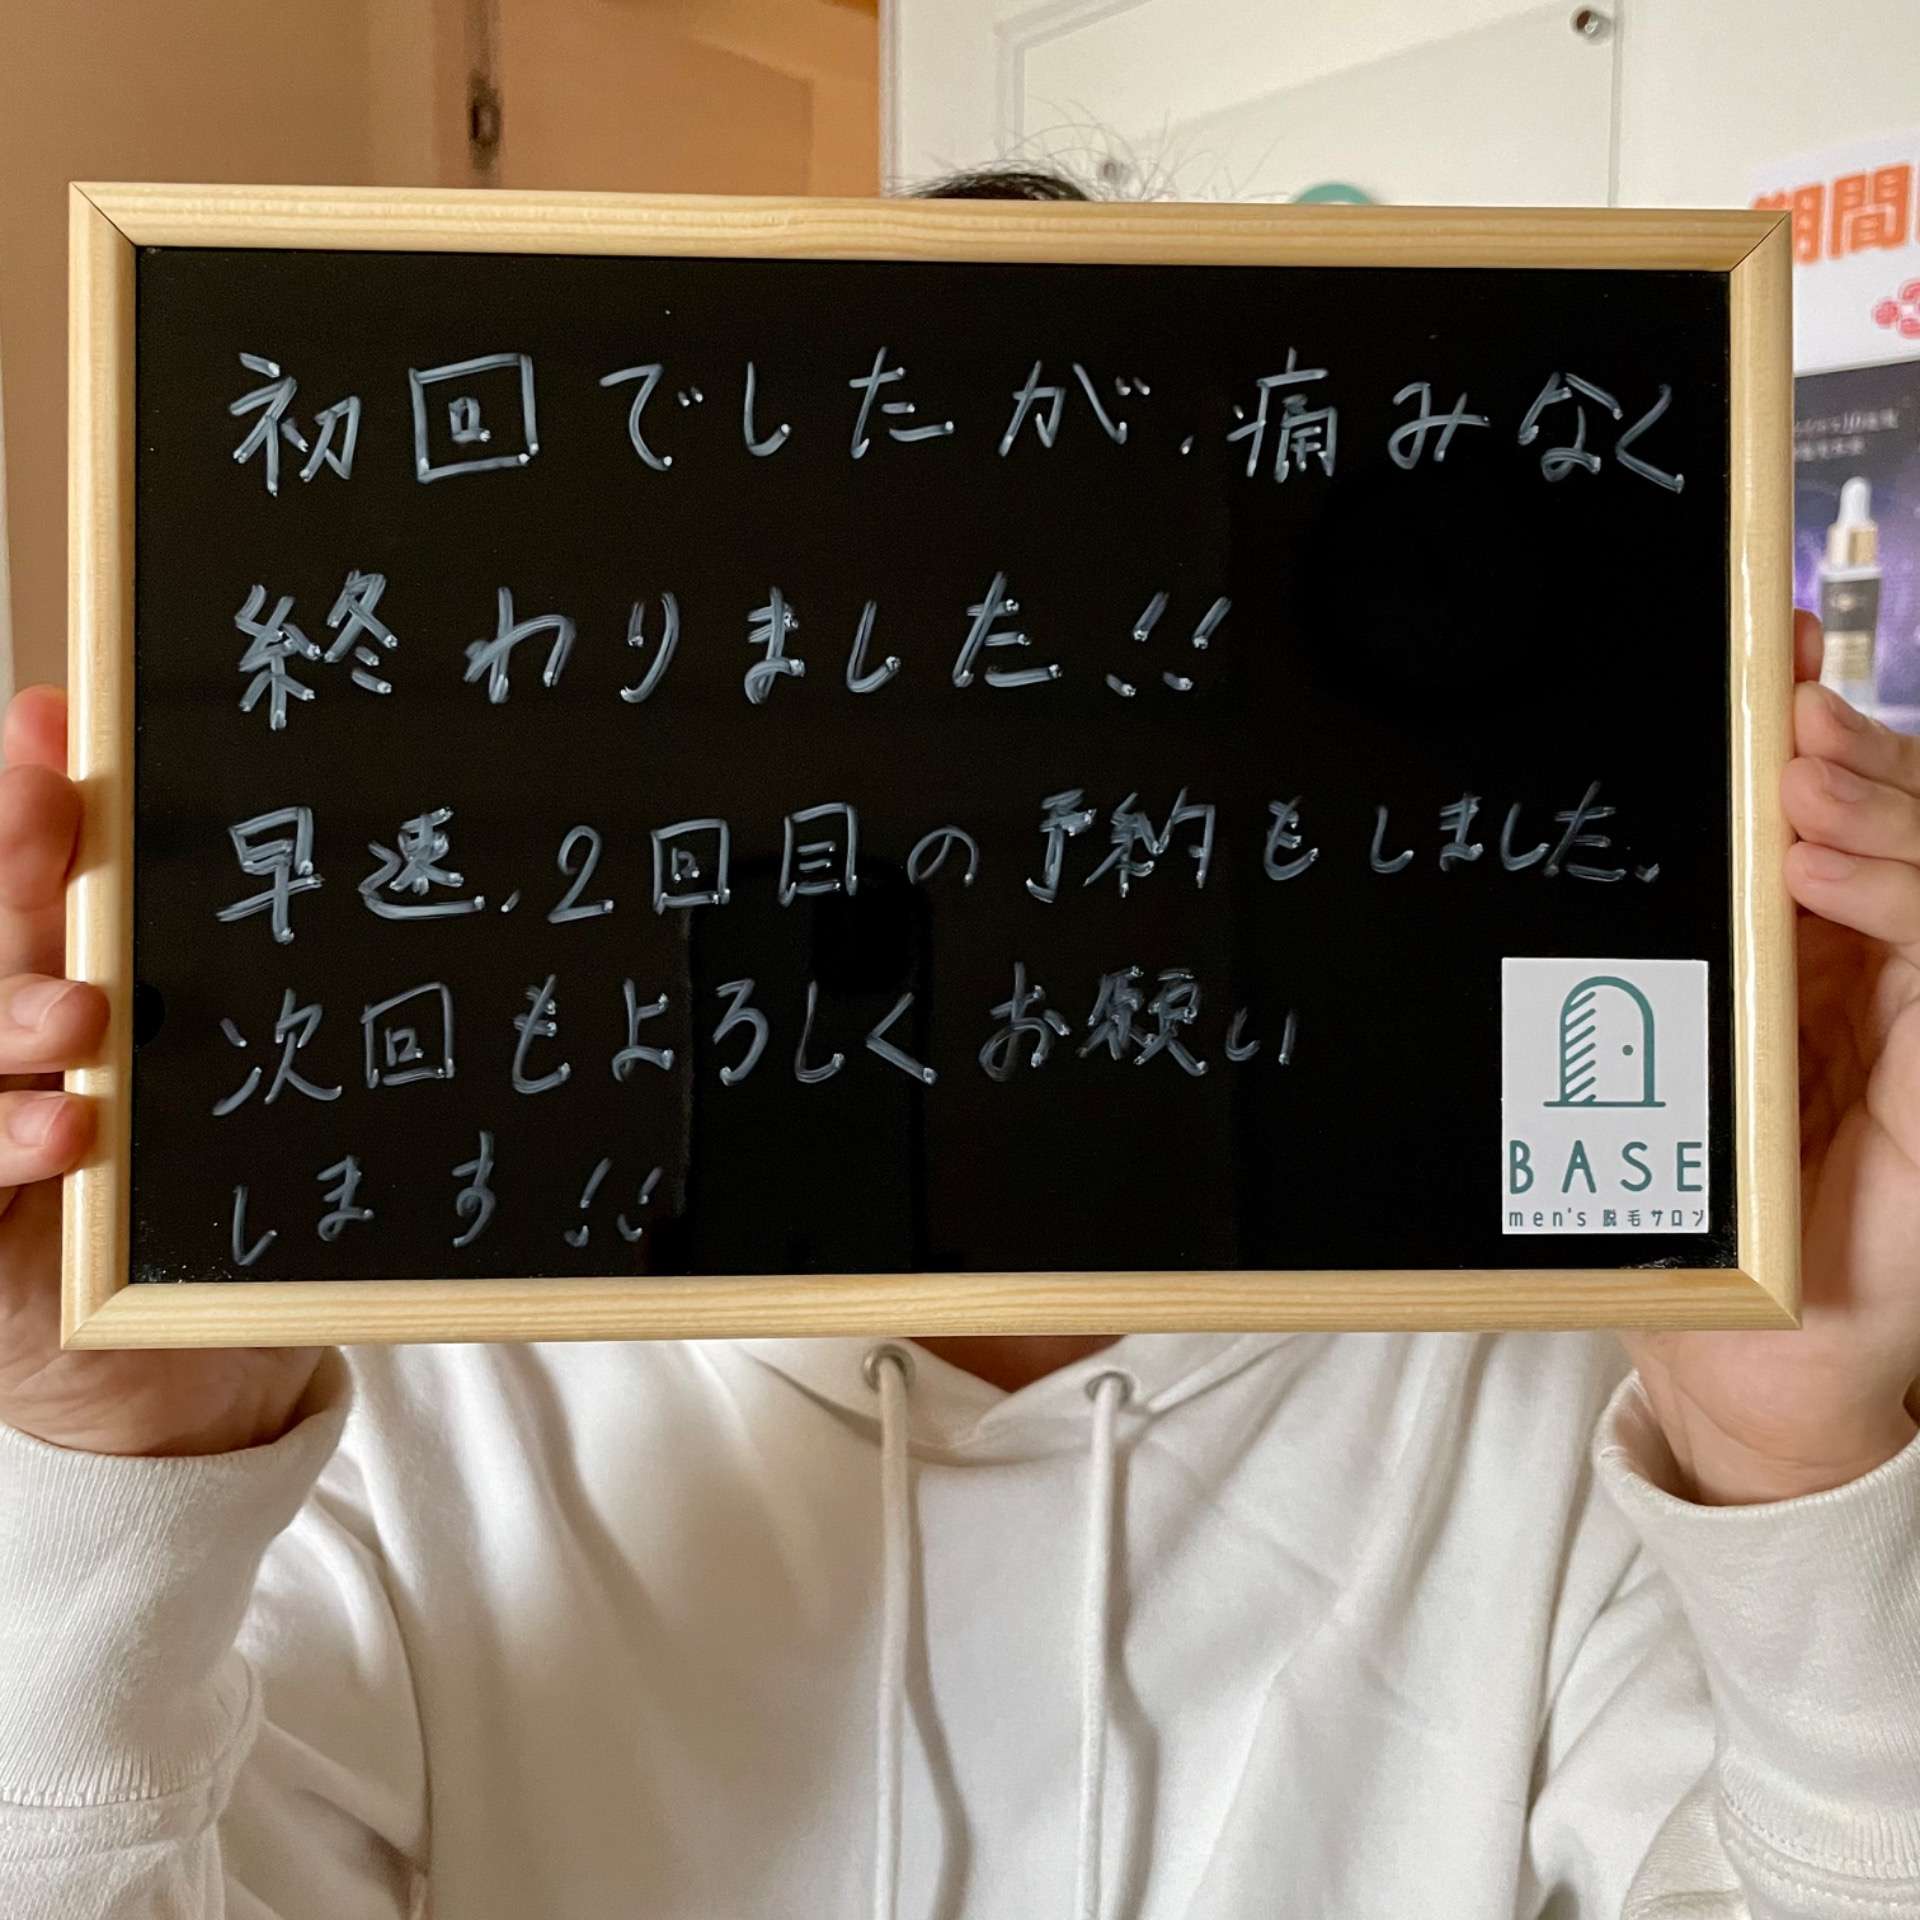 初回でしたが、痛みなく
終わりました!!
早速、2回目の予約もしました。
次回もよろしくお願い
します!!
BASE
men's 脱毛サロン
期間